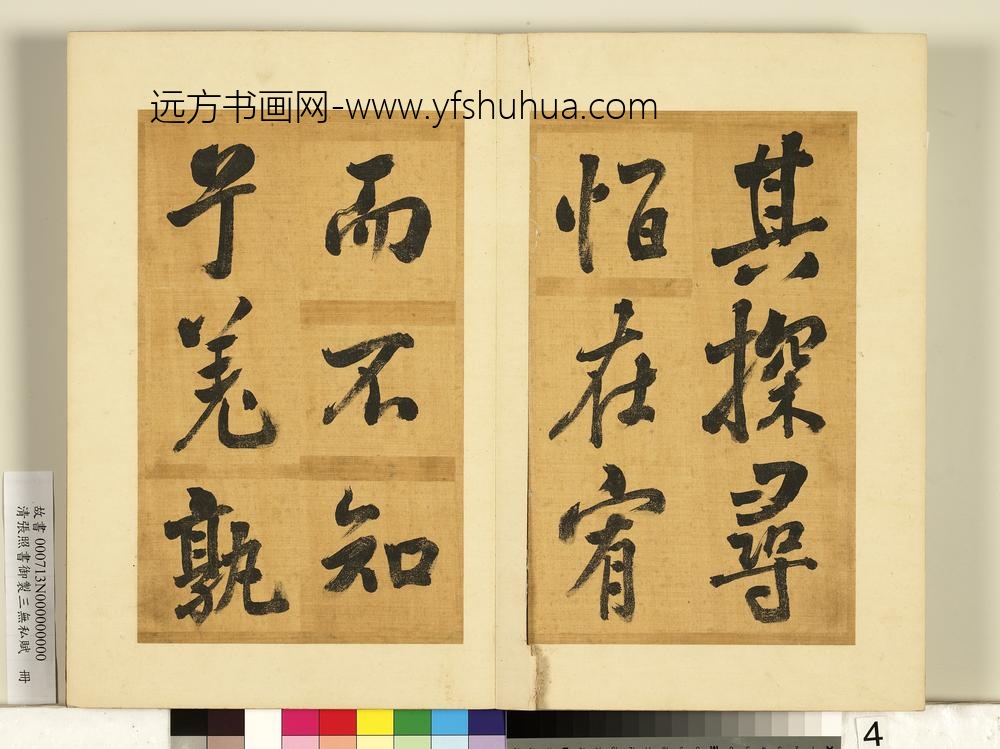 远方书画网-www.yfshuhua.com
其探尋
恒在宥
而不知
兮羌孰
故書000713N000000000
清張照書御製三無私賦 冊
4